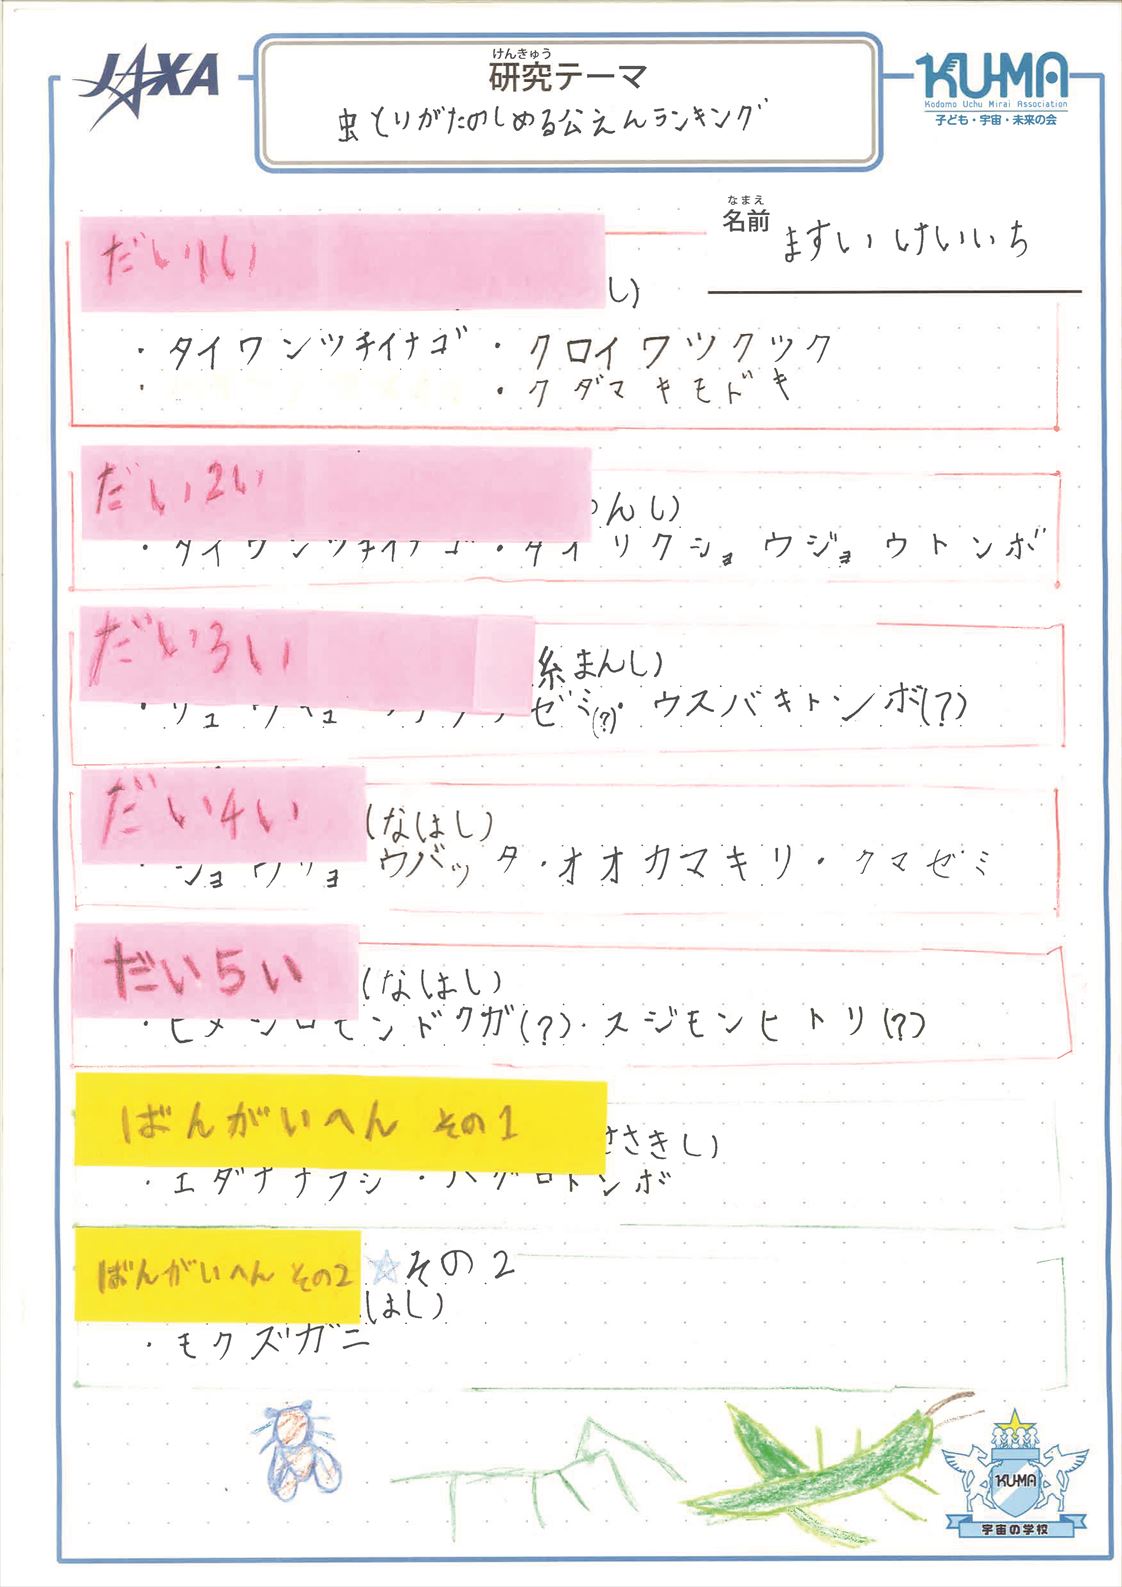 JAXA
けんきゅう
研究テーマ
虫とりがたのしめる公えんランキング
KUMA
Kodomo Uchu Mirai Association
子ども・宇宙・未来の会
なまえ
名前 ますい けいいち
だい1い
し)
・タイワンツチイナゴ ・クロイワツクツク
・ ・クダマキモドキ
だい2い
んし)
・タイワンツチイナゴ・タイリクショウジョウトンボ
だい3い
糸まんし)
ゼミ(?)・ウスバキトンボ(?)
だい4い
(なはし)
・ショウリョウバッタ・オオカマキリ・クマゼミ
だい5い
(なはし)
・ヒメシロモンドクガ(?)・スジモンヒトリ(?)
ばんがいへん その1
ささきし)
・エダナナフシ ・ハグロトンボ
ばんがいへん その2 ☆その2
はし)
・モクズガニ
KU-MA
宇宙の学校